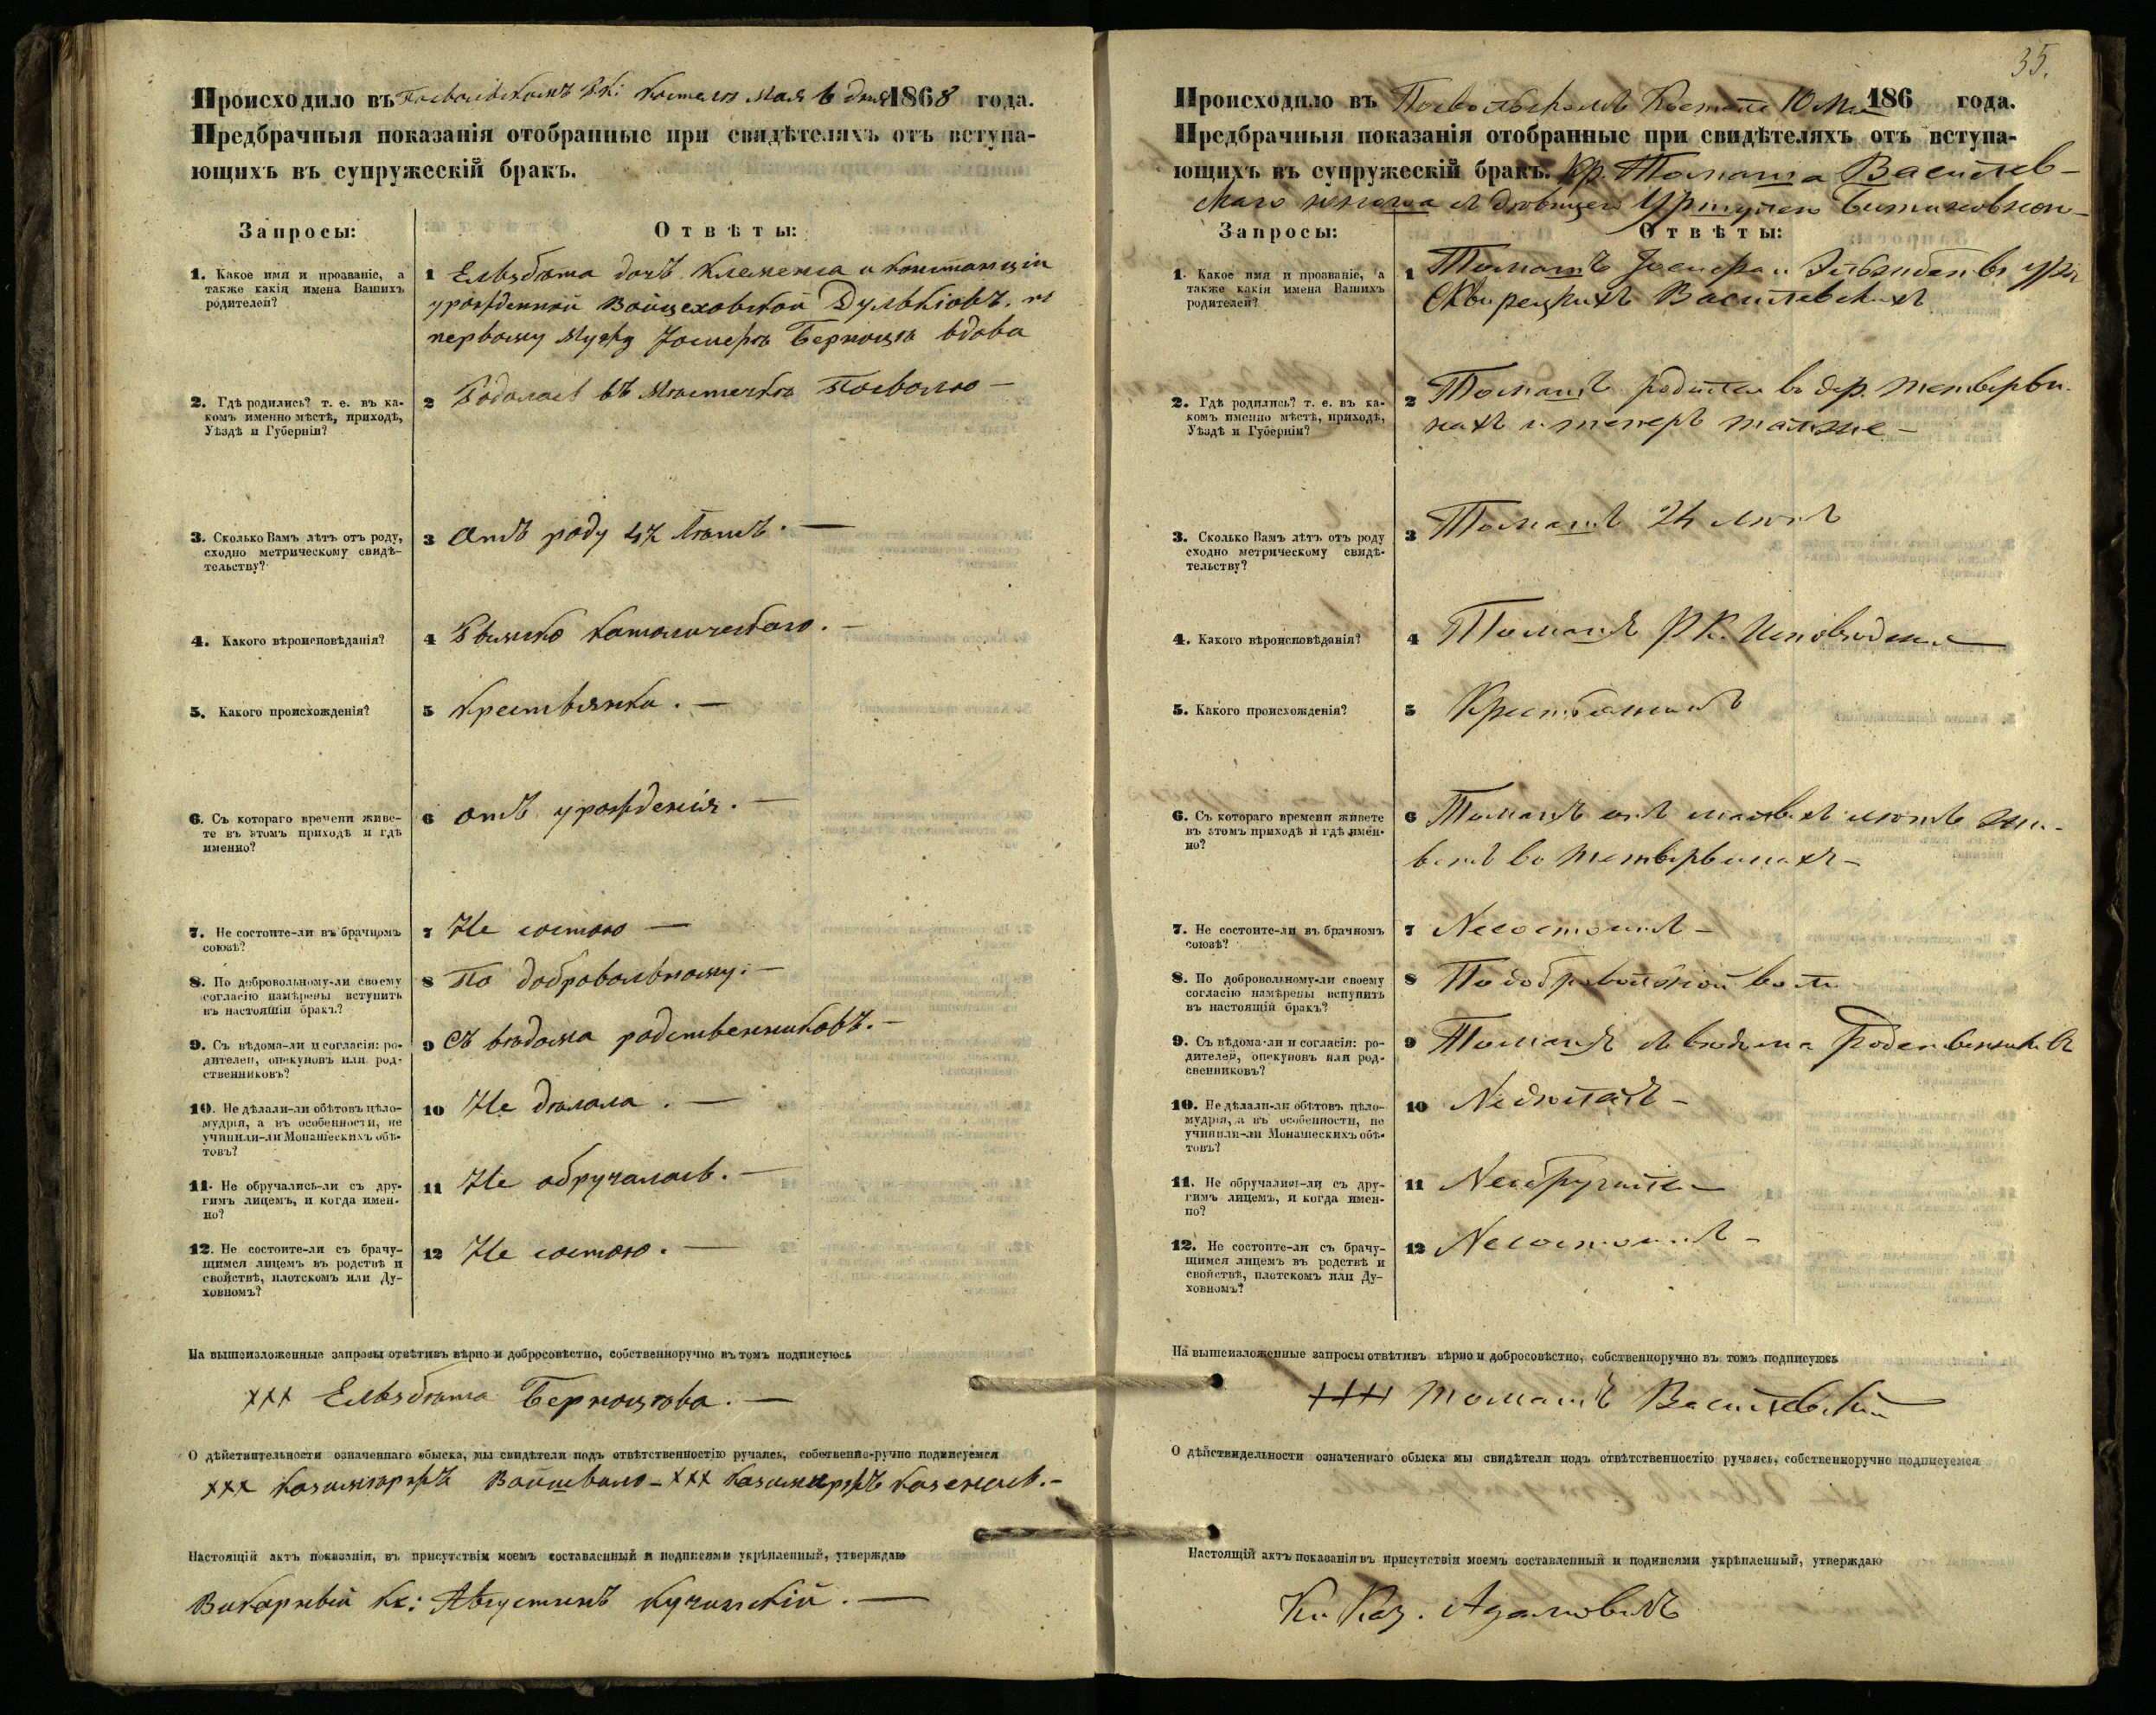 Происходило въ Посвольскомъ Р.К: костелѣ Мая 6 дня 1868 года.
Предбрачныя показанія отобранные при свидѣтеляхъ отъ вступа-
ющихъ въ супружескій бракъ.
Запросы:
Отвѣты:
1. Какое имя и прозваніе, а
также какія имена Вашихъ
родителей?
1 Ельзбѣта дочь Клеменса и Констанціи
урожденной Войцеховской Дулькіовъ. по
первому мужу Іосифѣ вдова
2. Гдѣ родились? т. е. въ ка-
комъ именно мѣстѣ, приходѣ,
Уѣздѣ и Губерніи?
2 Родалась въ мѣстечкѣ Посволю —
3. Сколько Вамъ лѣтъ отъ роду,
сходно метрическому свидѣ-
тельству?
3 Отъ роду лѣтъ. —
4. Какого вѣроисповѣданія?
4 Римско католическаго. —
5. Какого происхожденія?
5 Крестьянка. —
6. Съ котораго времени живе-
те въ этомъ приходѣ и гдѣ
именно?
6 Отъ урожденія. —
7. Не состоите-ли въ брачномъ
союзѣ?
7 Не состою —
8. По добровольному-ли своему
согласію намѣрены вступить
въ настоящій бракъ?
8 По добровольному. —
9. Съ вѣдома-ли и согласія: ро-
дителей, опекуновъ или род-
ственниковъ?
9 Съ вѣдома родственниковъ. —
10. Не дѣлали-ли обѣтовъ цѣло-
мудрія, а въ особенности, не
учинили-ли Монашескихъ обѣ-
товъ?
10 Не дѣлала. —
11. Не обручались-ли съ дру-
гимъ лицемъ, и когда имен-
но?
11 Не обручалась. —
12. Не состоите-ли съ брачу-
щимся лицемъ въ родствѣ и
свойствѣ, плотскомъ или Ду-
ховномъ?
12 Не состою. —
На вышеизложенные запросы отвѣтивъ вѣрно и добросовѣстно, собственноручно въ томъ подписуюсь
××× Ельзбѣта —
О дѣйствительности означеннаго обыска, мы свидѣтели подъ отвѣтственностію ручаясь, собственно-ручно подписуемся
××× Войшвило — ×××
Настоящій актъ показанія, въ присутствіи моемъ составленный и подписями укрѣпленный, утверждаю
Викарный Кс: Августинъ Кучинскій. —
35.
Происходило въ Посвольскомъ Костелѣ 10 Мая 186 года.
Предбрачныя показанія отобранные при свидѣтеляхъ отъ вступа-
ющихъ въ супружескій бракъ. Кр. Томаша Василев-
скаго юноша съ дѣвицею Уршулею
Запросы:
Отвѣты:
1. Какое имя и прозваніе, а
также какія имена Вашихъ
родителей?
1 Томашъ Іосифа и
Василевскихъ
2. Гдѣ родились? т. е. въ ка-
комъ именно мѣстѣ, приходѣ,
Уѣздѣ и Губерніи?
2 Томашъ родился въ дер. Тетверви-
нахъ и теперъ также —
3. Сколько Вамъ лѣтъ отъ роду
сходно метрическому свидѣ-
тельству?
3 Томашъ 24 лѣтъ
4. Какого вѣроисповѣданія?
4 Томашъ Р. К. Исповѣданія
5. Какого происхожденія?
5 Крестьянинъ
6. Съ котораго времени живете
въ этомъ приходѣ и гдѣ имен-
но?
6 Томашъ отъ малыхъ лѣтъ жи-
ветъ въ Тетвервинахъ —
7. Не состоите-ли въ брачномъ
союзѣ?
7 Несостоитъ —
8. По добровольному-ли своему
согласію намѣрены вспупить
въ настоящій бракъ?
8 По добровольной воли
9. Съ вѣдома-ли и согласія: ро-
дителей, опекуновъ или род-
свенниковъ?
9 Томашъ съ вѣдома Родственниковъ
10. Не дѣлали-ли обѣтовъ цѣло-
мудрія, а въ особенности, не
учинили-ли Монашескихъ обѣ-
товъ?
10 Недѣлалъ —
11. Не обручались-ли съ дру-
гимъ лицемъ, и когда имен-
но?
11 Необручился
12. Не состоите-ли съ брачу-
щимся лицемъ въ родствѣ и
свойствѣ, плотскомъ или Ду-
ховномъ?
12 Несостоитъ —
На вышеизложенные запросы отвѣтивъ вѣрно и добросовѣстно, собственноручно въ томъ подписуюсь
Томашъ Василевскій
О дѣйствидельности означеннаго обыска мы свидѣтели подъ отвѣтственностію ручаясь, собственноручно подписуемся
Настоящій актъ показанія въ присутствіи моемъ составленный и подписями укрѣпленный, утверждаю
Кс. Каз. Адамовичъ